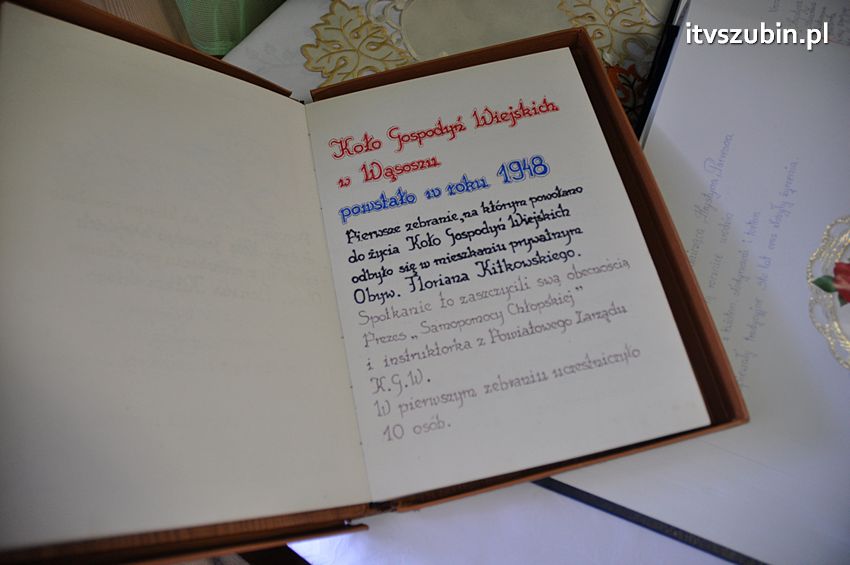 itvszubin.pl
Koło Gospodyń Wiejskich
w Wąsoszu
powstało w roku 1948
Pierwsze zebranie, na którym powołano
do życia Koło Gospodyń Wiejskich
odbyło się w mieszkaniu prywatnym
Obyw. Floriana Kiłkowskiego.
Spotkanie to zaszczycili swą obecnością
Prezes „Samopomocy Chłopskiej”
i instruktorka z Powiatowego Zarządu
K.G.W.
W pierwszym zebraniu uczestniczyło
10 osób.